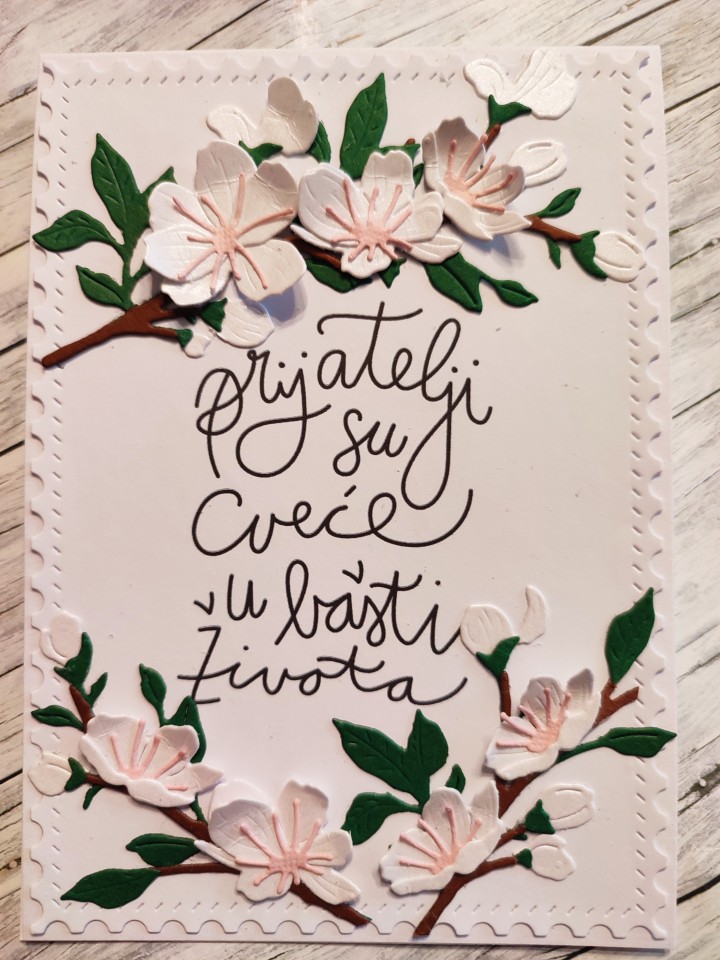 prijatelji
su
cveće
u bašti
života